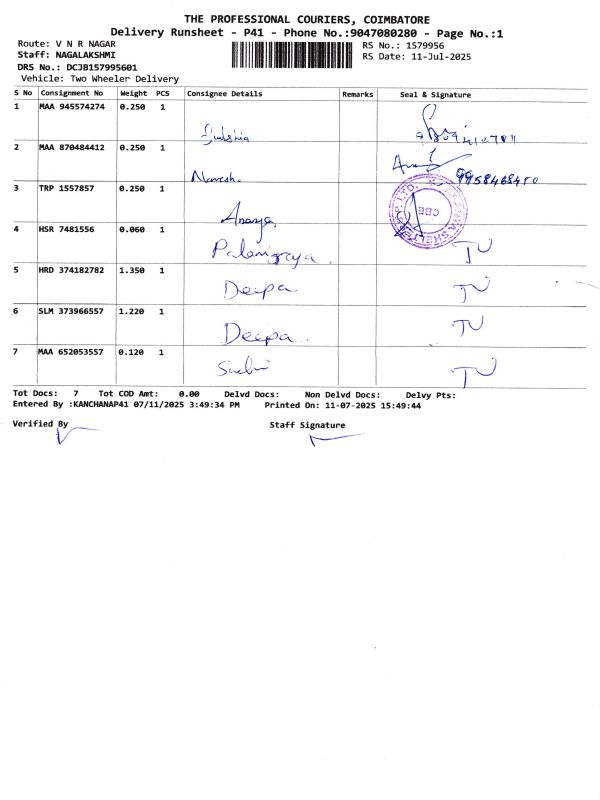 THE PROFESSIONAL COURIERS, COIMBATORE
Delivery Runsheet - P41 - Phone No.:9047080280 - Page No.:1
Route: V N R NAGAR
Staff: NAGALAKSHMI
DRS No.: DCJB157995601
Vehicle: Two Wheeler Delivery
RS No.: 1579956
RS Date: 11-Jul-2025
S No Consignment No Weight PCS Consignee Details Remarks Seal & Signature
1 MAA 945574274 0.250 1
2 MAA 870484412 0.250 1 Naresh.
3 TRP 1557857 0.250 1 Ananya
CBE
4 HSR 7481556 0.060 1
5 HRD 374182782 1.350 1 Deepa
6 SLM 373966557 1.220 1 Deepa
7 MAA 652053557 0.120 1
Tot Docs: 7 Tot COD Amt: 0.00 Delvd Docs: Non Delvd Docs: Delvy Pts:
Entered By :KANCHANAP41 07/11/2025 3:49:34 PM Printed On: 11-07-2025 15:49:44
Verified By Staff Signature